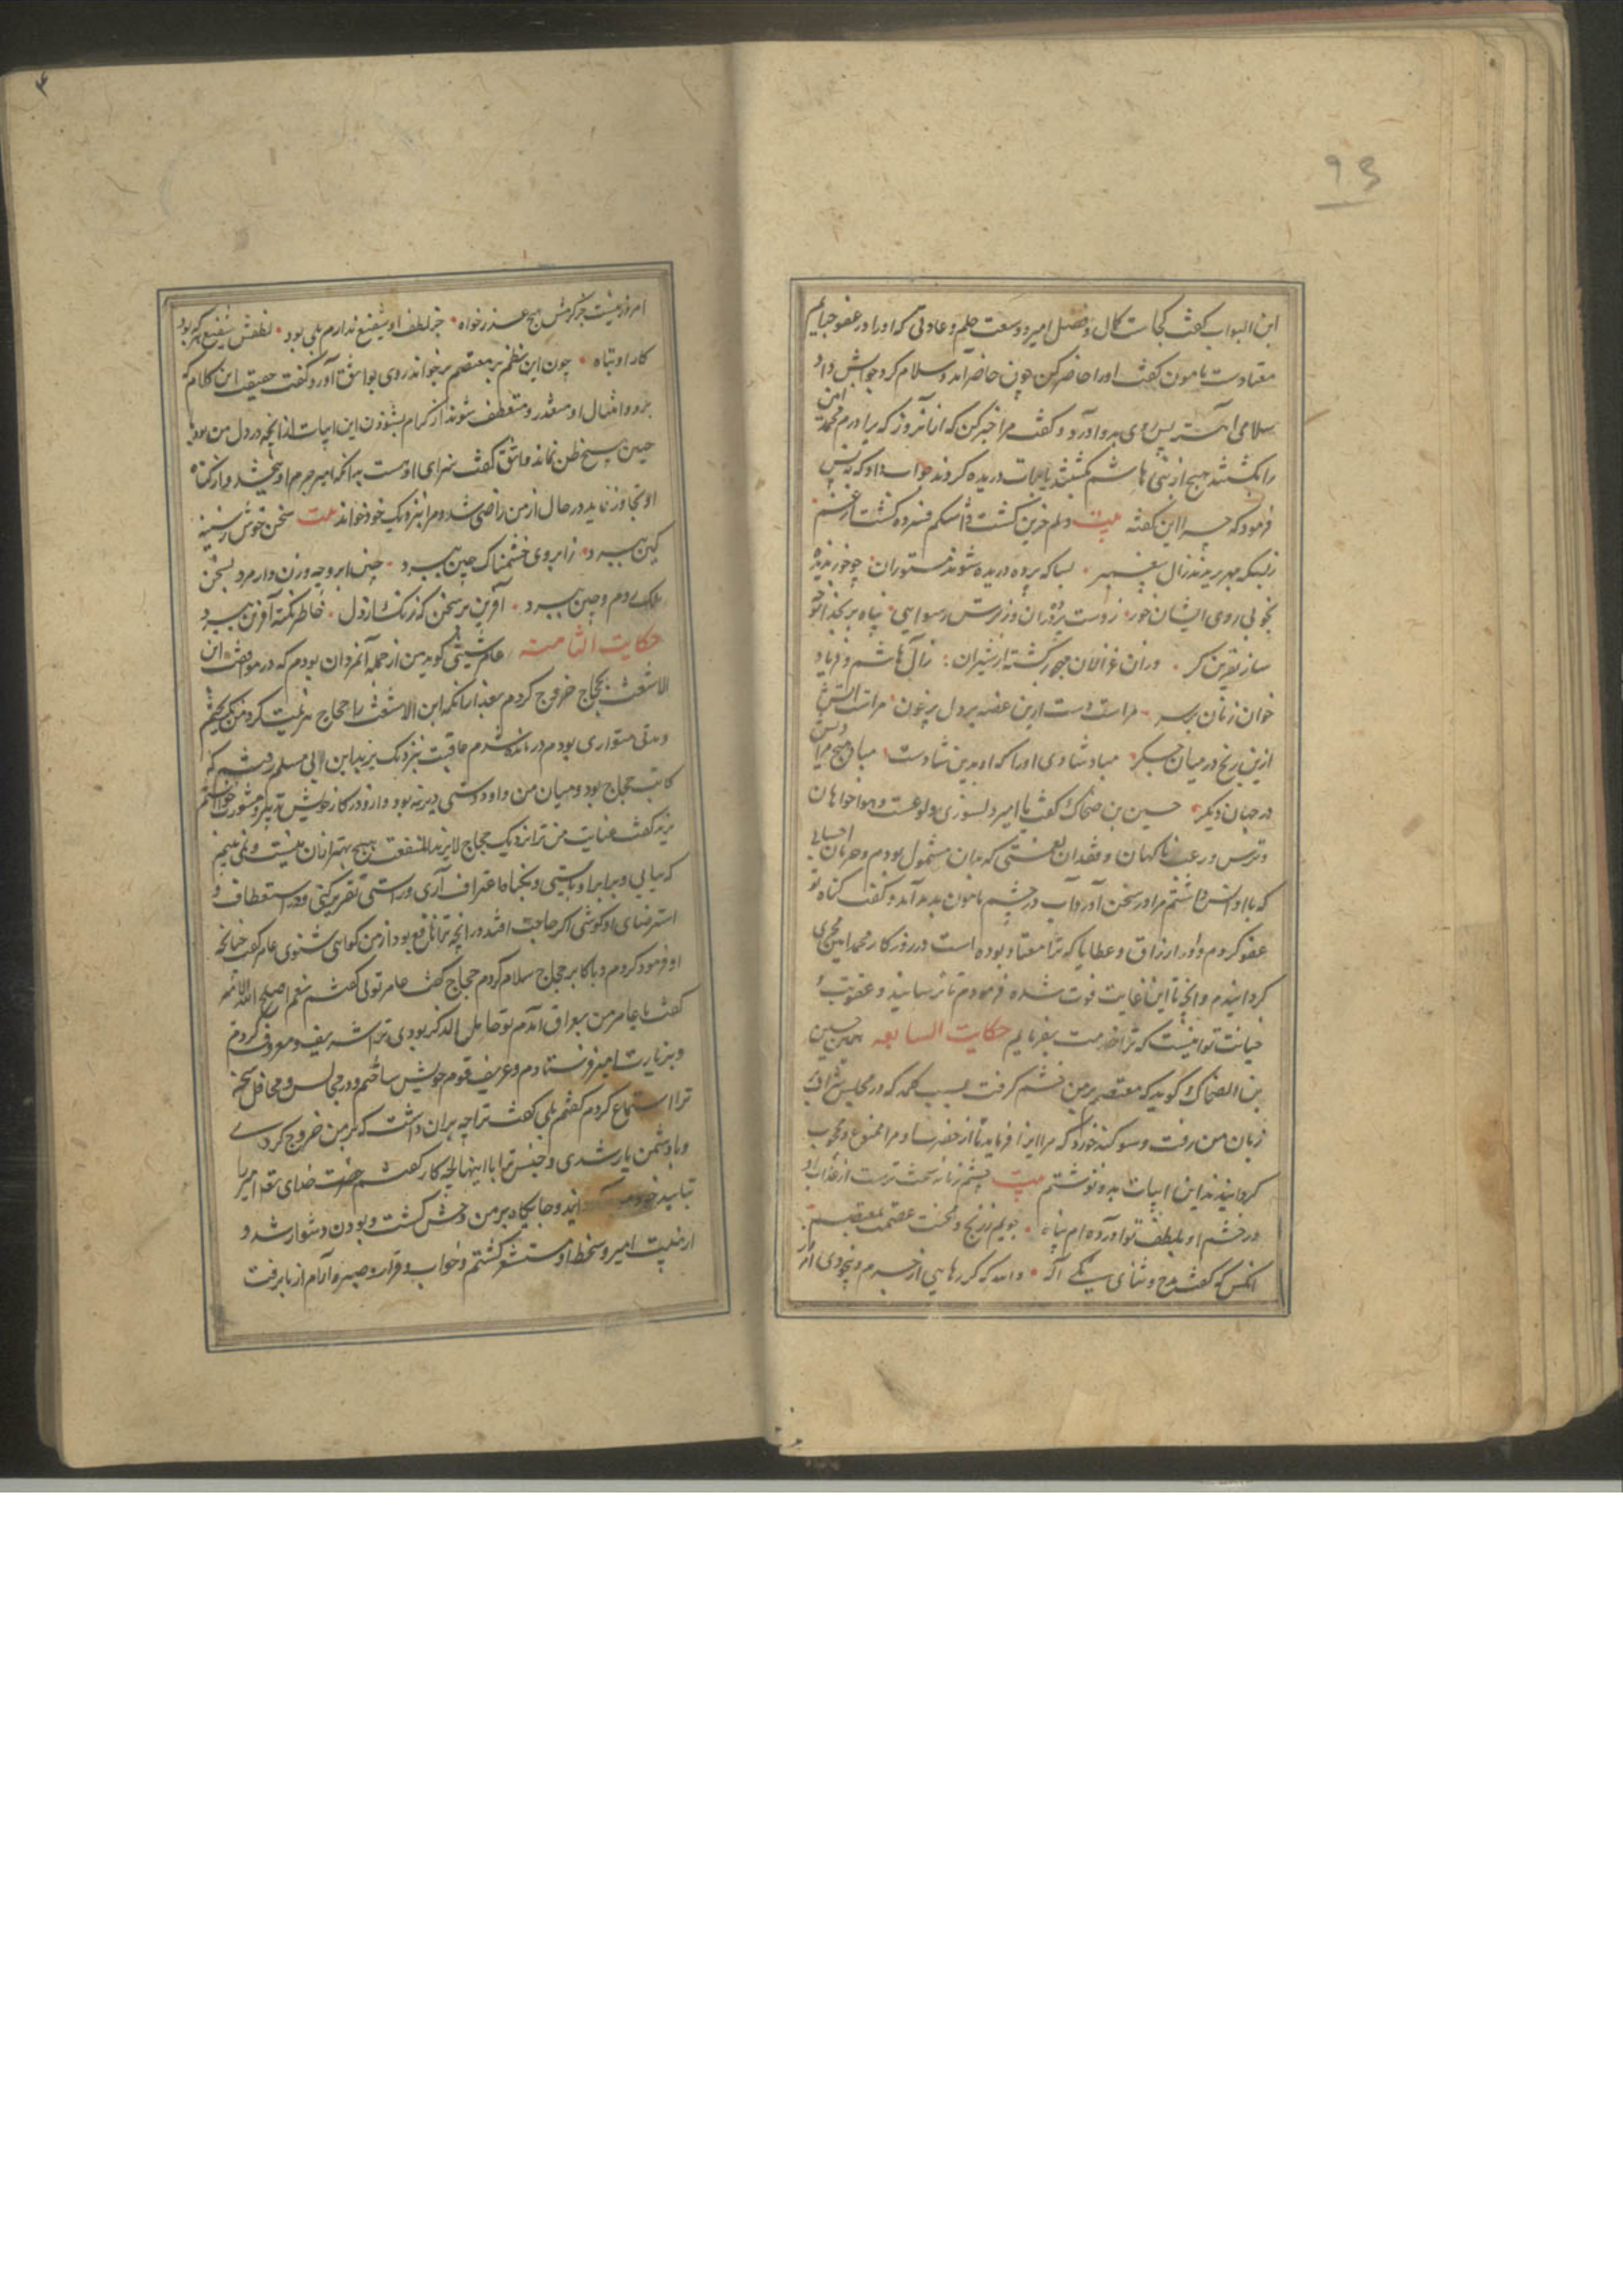 ۹۳
ابن البواب کفت کجاست کمال و فضل امیر و وسعت حلم و عادتی که او را در عفو جبایم
معتادست مامون کفت او را حاضر کن چون حاضر آمد و سلام کرد جوابش داد
سلامی آهسته پس روی بدو آورد و کفت مرا خبر کن که از آنروز که برادرم محمد امین
را بکشتند هیچ از بنی هاشم کشتند یا بنات دریده کردند جواب داد که نی پس
فرمود که چرا این کفته بیت دلم حزین کشت و اشکم فزوده کشت از غم
زبسکه مهر بریدند زال پیغمبر بسا که پرده دریده شوند مستوران چو خور ندیده
بخوبی روی ایشان خور زدست
ساز نفرین کر وزان غزالان مهجور کشته از شیران زال هاشم و فریاد
خوان زنان برسر مراست دست ازین غصه بر دل پرخون مراست آتش
ازین رنج در میان جکر مباد شادی او را که او بدین شادست مباد هیچ مرا
در جهان دیکر حسین بن ضحاک کفت یا امیر دلسوزی و لوعت و هواخواهان
و ترس و رعب ناکهان و فقدان نعمتی که بدان مشمول بودم و حرمان احسانی
که با او انس داشتم مرا در سخن آورد آب در چشم مامون بدید آمد و کفت کناه تو
عفو کردم و ادرار ارزاق و عطایا که ترا معتاد بوده است در روزکار محمد امین مجری
کردانیدم و آنچه تا این غایت فوت شده فرمودم تا برسانند و عقوبت
خیانت تو اینست که ترا خدمت نفرمایم حکایت السابعه هم حسین
بن الضحاک کوید که معتصم بر من خشم کرفت بسبب کلمه که در مجلس شراب بر
زبان من رفت و سوکند خورد که مرا ایذا فرماید تا از حضرت او مرا ممنوع و محجوب
کردانیدند این ابیات بدو نوشتم بیت خشم زمانه سخت ترست از عذاب او
در خشم او بلطف تو آورده ام پناه جویم ز رنج و محنت عصمت بمعتصم
آنکس که کفت مدح و ثنای یکی آله
امروز نیست جز کرمش هیچ عذرخواه جز لطف او شفیع ندارم بلی بود لطفش شفیع هر که بود
کار او تباه چون این نظم بر معتصم برخواند روی بواثق آورد و کفت حقیقت این کلام که
برد و امثال او معتذر و متعطف شوند از کرام بشنودن این ابیات از آنچه در دل من بود از
حسین هیچ ظن نماند واثق کفت سزای او آنست بدانکه امیر جرم او ببخشد و از کناه
او تجاوز نماید در حال از من راضی شد و مرا بنزدیک خود خواند بیت سخن خوش ز سینه
کین ببرد ز ابروی خشمناک چین ببرد چین ابرو چه وزن دارد مرد بسخن
ملک روم و چین ببرد آفرین بر سخن که زنک از دل خاطر نکته آفرین ببرد
حکایت الثامنه عامر شیبی کوید من از جمله آنمردان بودم که در موافقت ابن
الاشعث بحجاج خروج کردم بعد از آنکه ابن الاشعث را حجاج هزیمت کرد من بکریختم
و مدتی متواری بودم درمانده شدم عاقبت بنزدیک یزید ابن ابی مسلم رفتم که
کاتب حجاج بود و میان من و او دوستی دیرینه بود و از او در کار خویش تدبیر و مشورت خواستم
یزید کفت عنایت من ترا نزدیک حجاج لایزید المنفعت هیچ بهتر از آن نیست و نمی بینم
که بیایی و برابر او بایستی و بکناه اعتراف آری و راستی تقریر کنی و در استعطاف و
استرضای او کوشی اکر حاجت افتد در آنچه ترا نافع بود از من کواهی شنوی عامر کفت چنانچه
او فرمود کردم و با کابر حجاج سلام کردم حجاج کفت عامر توئی کفتم نعم اصلح الله الامیر
کفت یا عامر من بعراق آمدم تو خامل الذکر بودی ترا شریف و معروف کردم
و بزیارت امیر فرستادم و عریف قوم خویش ساختم و در مجالس و محافل سخن
ترا استماع کردم کفتم بلی کفت ترا چه بر آن داشت که بر من خروج کردی
و با دشمن یار شدی و جنس ترا با اینها چه کار کفتم حضرت خدای تعالی امیر را
بتایید خود اند و جایکاه بر من وحش کشت و بودن دشوار شد و
از هیبت امیر و سخط او مستشعر کشتم و خواب و قرار و صبر و آرام از ما برفت